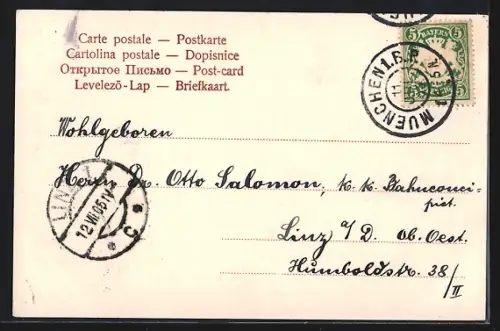 Carte postale — Postkarte
Cartolina postale — Dopisnice
Открытое Письмо — Post-card
Levelező-Lap — Briefkaart.
5 5
BAYERN
MUENCHEN 1.B.P.
Wohlgeboren
Herrn Dr. Otto Salomon, k. k. Bahnconci-
pist.
LINZ 1
12 VII 05 IV
Linz a/D. ob. Oest.
Humboldstr. 38/II